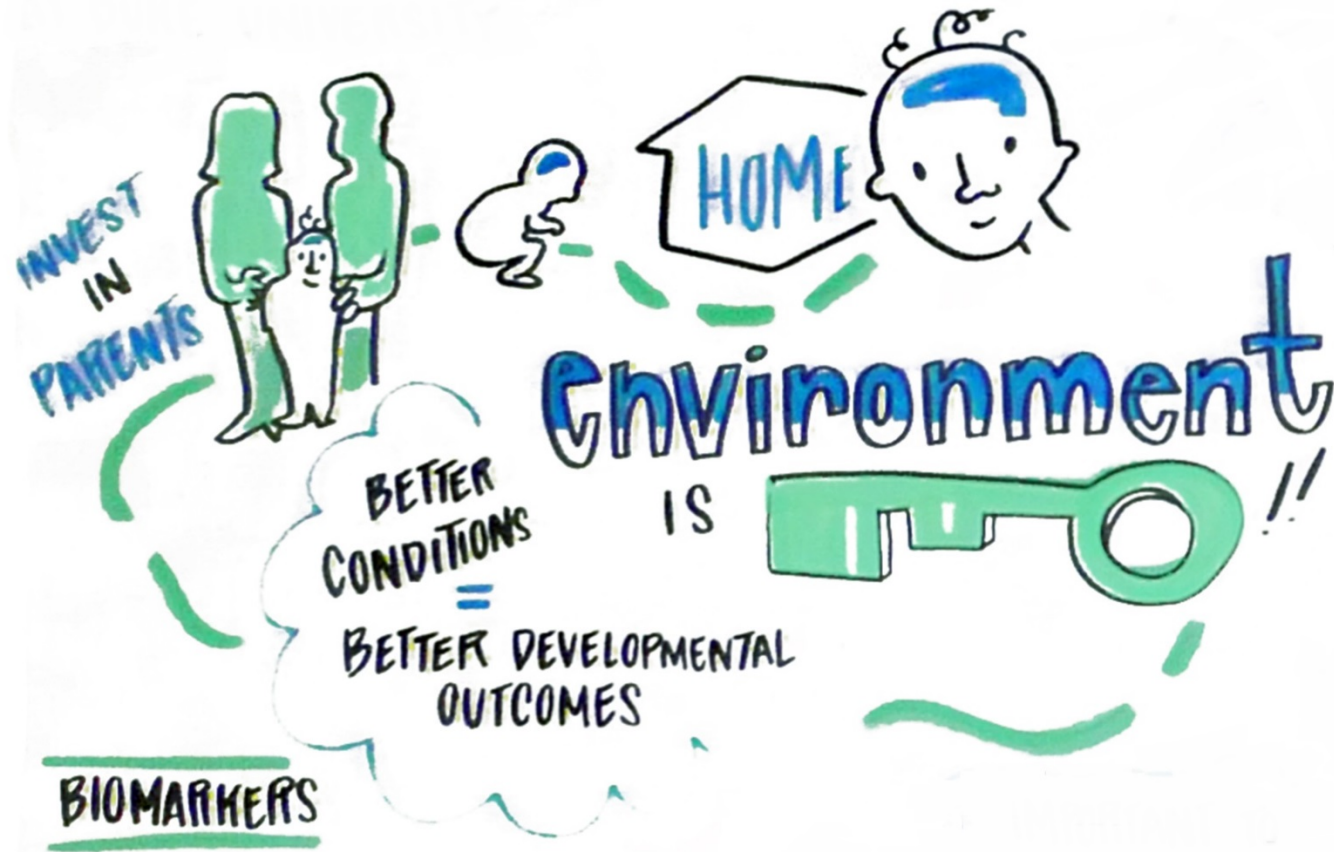 INVEST
IN
PARENTS
HOME
environment
IS
!!
BETTER
CONDITIONS
=
BETTER DEVELOPMENTAL
OUTCOMES
BIOMARKERS